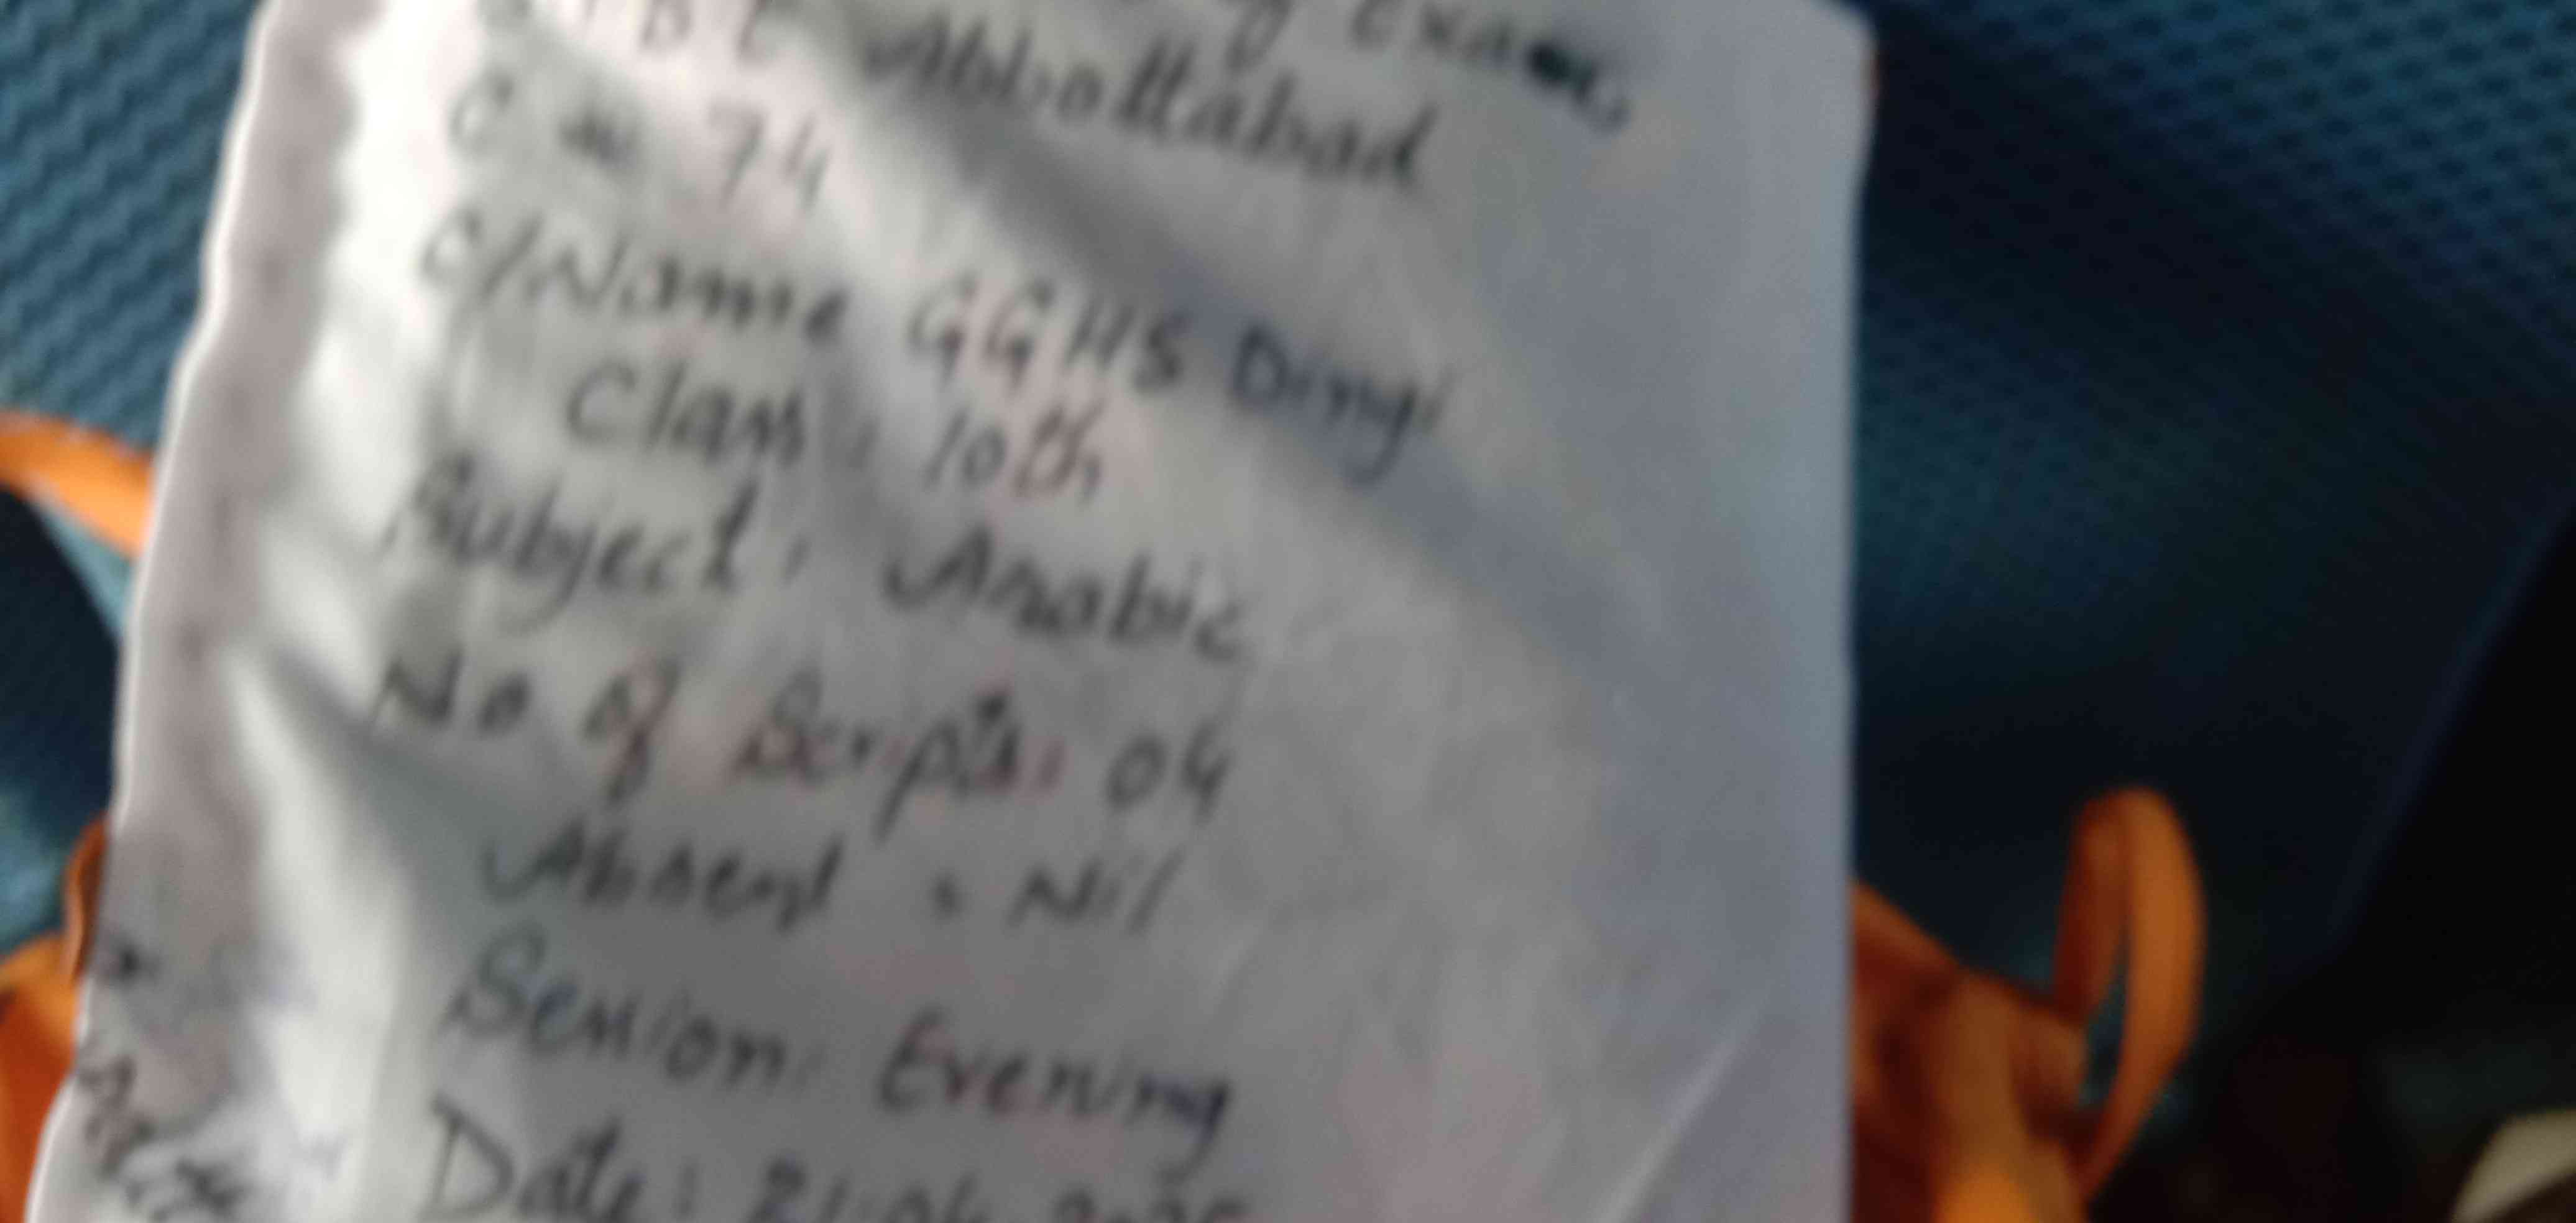 Exam
Abbottabad
C # 74
C/Name GGHS Dingi
Class: 10th
Subject: Arabic
No of Scripts: 04
Absent: Nil
Session: Evening
Date: 21.04.2025